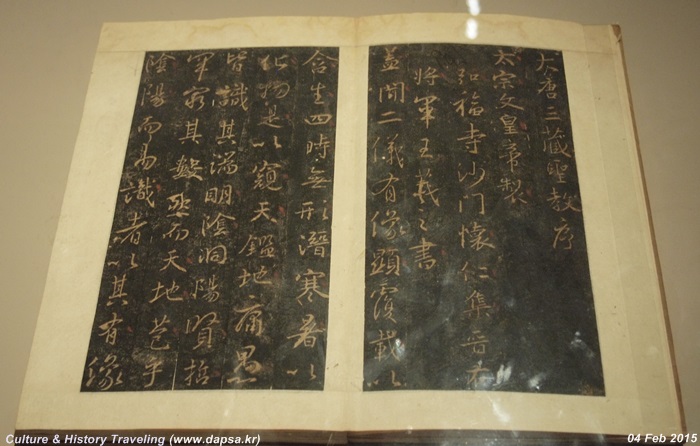 大唐三藏聖教序
太宗文皇帝製
弘福寺沙門懷仁集晉右
將軍王羲之書
蓋聞二儀有像顯覆載以
含生四時無形潛寒暑以
化物是以窺天鑑地庸愚
皆識其端明陰洞陽賢哲
罕窮其數然而天地苞乎
陰陽而易識者以其有像
Culture & History Traveling (www.dapsa.kr)
04 Feb 2015